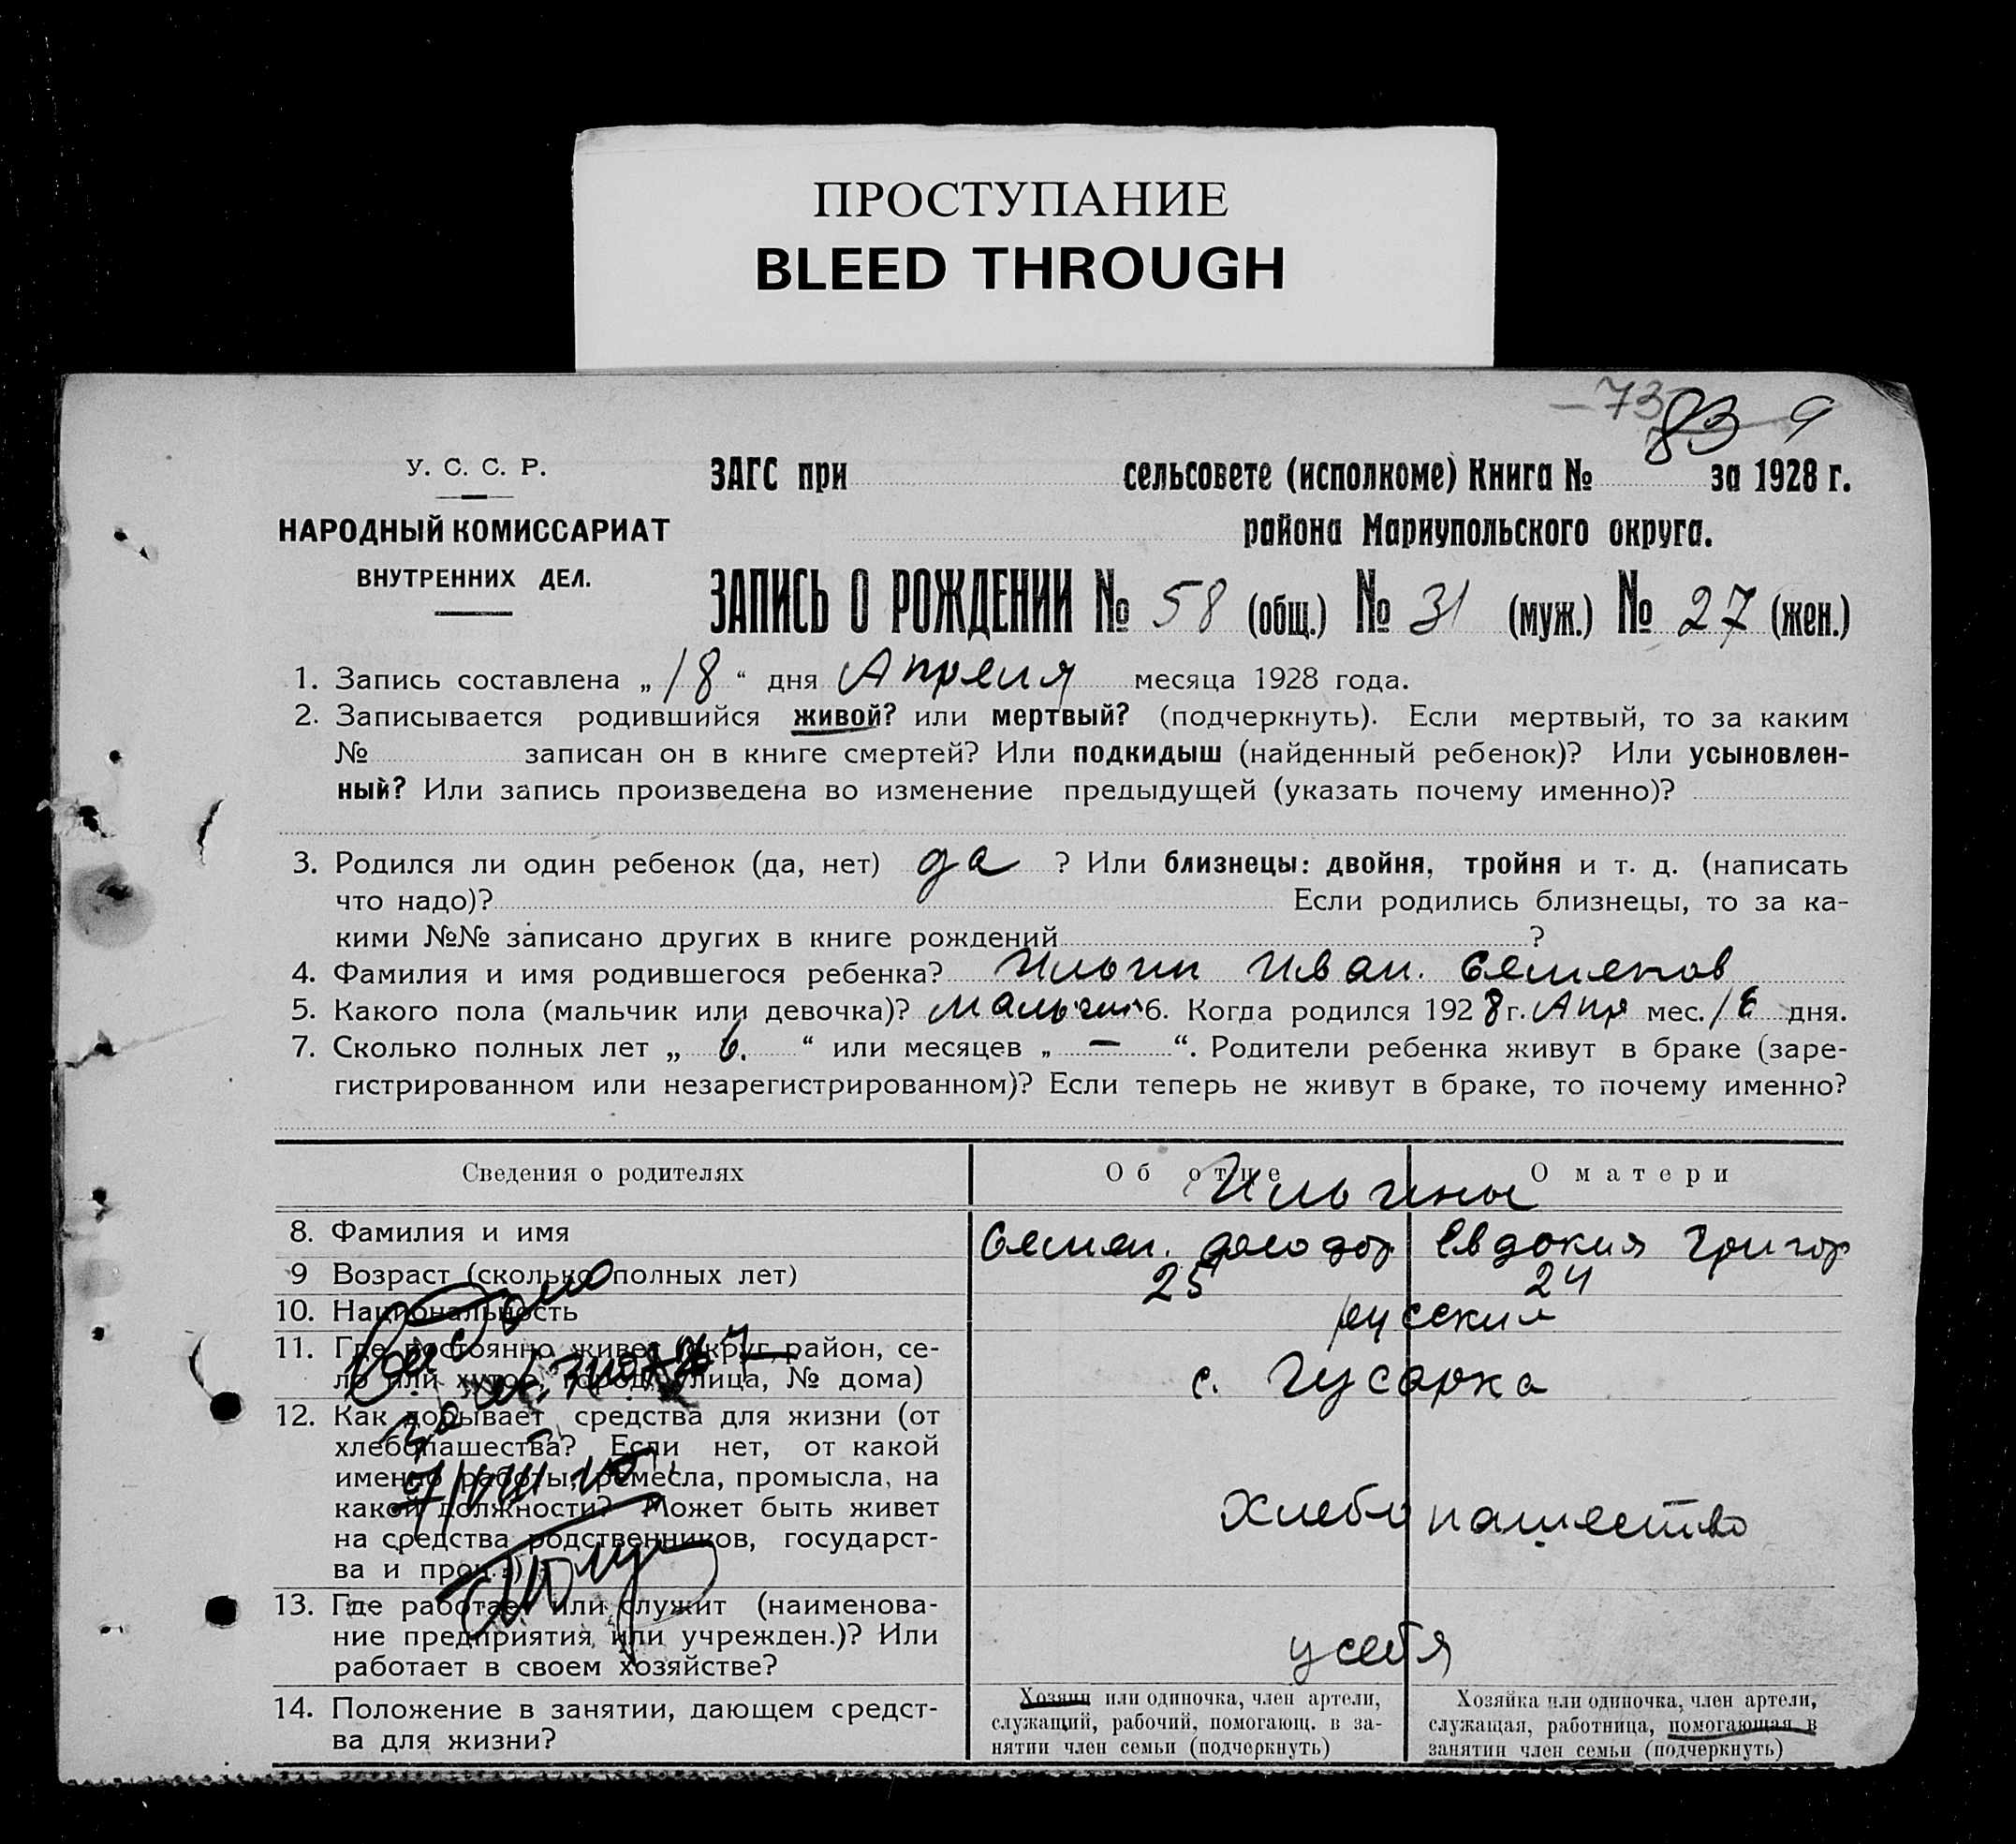 ПРОСТУПАНИЕ
BLEED THROUGH
73
83 9
У. С. С. Р.
НАРОДНЫЙ КОМИССАРИАТ
ВНУТРЕННИХ ДЕЛ.
ЗАГС при сельсовете (исполкоме) Книга № за 1928 г.
района Мариупольского округа.
ЗАПИСЬ О РОЖДЕНИИ № 58 (общ.) № 31 (муж.) № 27 (жен.)
1. Запись составлена „ 18 “ дня Апреля месяца 1928 года.
2. Записывается родившийся живой? или мертвый? (подчеркнуть). Если мертвый, то за каким
№ записан он в книге смертей? Или подкидыш (найденный ребенок)? Или усыновлен-
ный? Или запись произведена во изменение предыдущей (указать почему именно)?
3. Родился ли один ребенок (да, нет) да ? Или близнецы: двойня, тройня и т. д. (написать
что надо)? Если родились близнецы, то за ка-
кими №№ записано других в книге рождений ?
4. Фамилия и имя родившегося ребенка? Ильин Иван. Семенов
5. Какого пола (мальчик или девочка)? мальчик 6. Когда родился 1928 г. Апр мес. 16 дня.
7. Сколько полных лет „ 6. “ или месяцев „ — “. Родители ребенка живут в браке (заре-
гистрированном или незарегистрированном)? Если теперь не живут в браке, то почему именно?
Сведения о родителях Об отце О матери
Ильины
8. Фамилия и имя Семен. Федор Евдокия Григор
9 Возраст (сколько полных лет) 25 24
10. Национальность русские
11. Где постоянно живет (округ, район, се-
ло или хутор, город, улица, № дома) с. Гусарка
12. Как добывает средства для жизни (от
хлебопашества? Если нет, от какой
именно работы, ремесла, промысла, на
какой должности? Может быть живет
на средства родственников, государст-
ва и проч.?) Хлебопашество
13. Где работает или служит (наименова-
ние предприятия или учрежден.)? Или
работает в своем хозяйстве? у себя
14. Положение в занятии, дающем средст-
ва для жизни?
Хозяин или одиночка, член артели,
служащий, рабочий, помогающ. в за-
нятии член семьи (подчеркнуть)
Хозяйка или одиночка, член артели,
служащая, работница, помогающая в
занятии член семьи (подчеркнуть)